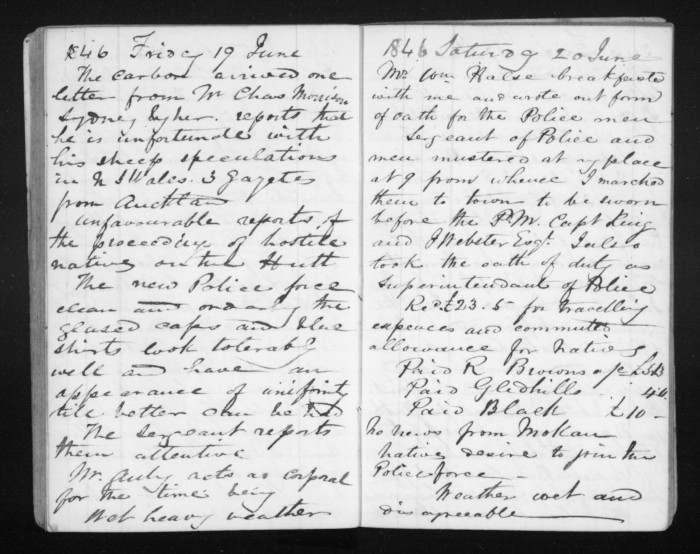 1846 Friday 19 June
The Carbon arrived one
letter from Mr Chas Morrison
Sydney Syher. reports that
he is unfortunate with
his sheep speculations
in N S Wales. 3 Gazetes
from Auckland
unfavourable reports of
the proceeding of hostile
natives on the Hutt
The new Police force
clean and orderly the
glased caps and blue
shirts look tolerably
well and have an
appearance of uniformity
till better can be had
The Sergeant reports
them attentive
Mr Auby acts as corporal
for the time being
Wet heavy weather
1846 Saturday 20 June
Mr Wm Halse breakfasted
with me and wrote out form
of oath for the Police men
Sergeant of Police and
men mustered at my place
at 9 from whence I marched
them to town to be sworn
before the P.M. Capt King
and J Webster Esqr. I also
took the oath of duty as
Superintendant of Police
Recd £23.5 for travelling
expences and commuted
allowance for Natives
Paid R Browns a/c
Paid Gledhills
Paid Black £10 -
no news from Mokau
natives desire to join the
Police force
Weather wet and
disagreeable